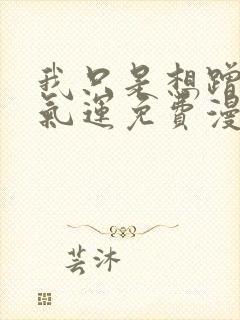 我只是想蹭
氣運免費漫
芸沐